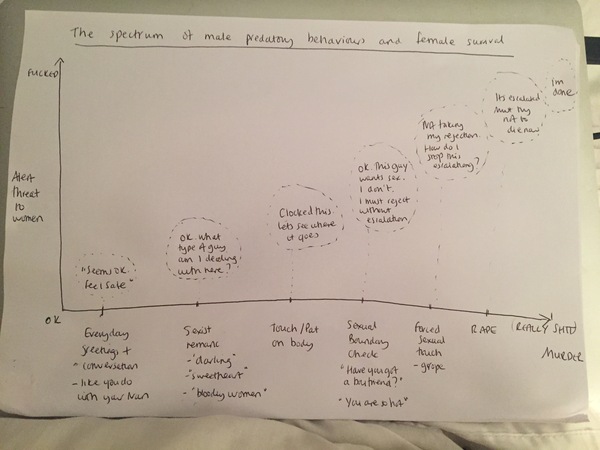 The spectrum of male predatory behaviours and female survival
FUCKED
Alert
threat
to
women
OK
"Seems OK.
feel safe"
OK. what
type of guy
am I dealing
with here?
Clocked this.
lets see where
it goes
OK. This guy
wants sex.
I don't.
I must reject
without
escalation
Not taking
my rejection.
How do I
stop this
escalating?
Its escalated
must try
not to
die now
Im
done.
Everyday
greetings +
- conversation
- like you do
with your Nan
Sexist
remark
- "darling"
- "sweetheart"
- "bloody women"
Touch/Pat
on body
Sexual
Boundary
Check
"Have you got
a boyfriend?"
"You are so hot"
Forced
sexual
touch
- grope
RAPE
(REALLY SHIT)
MURDER